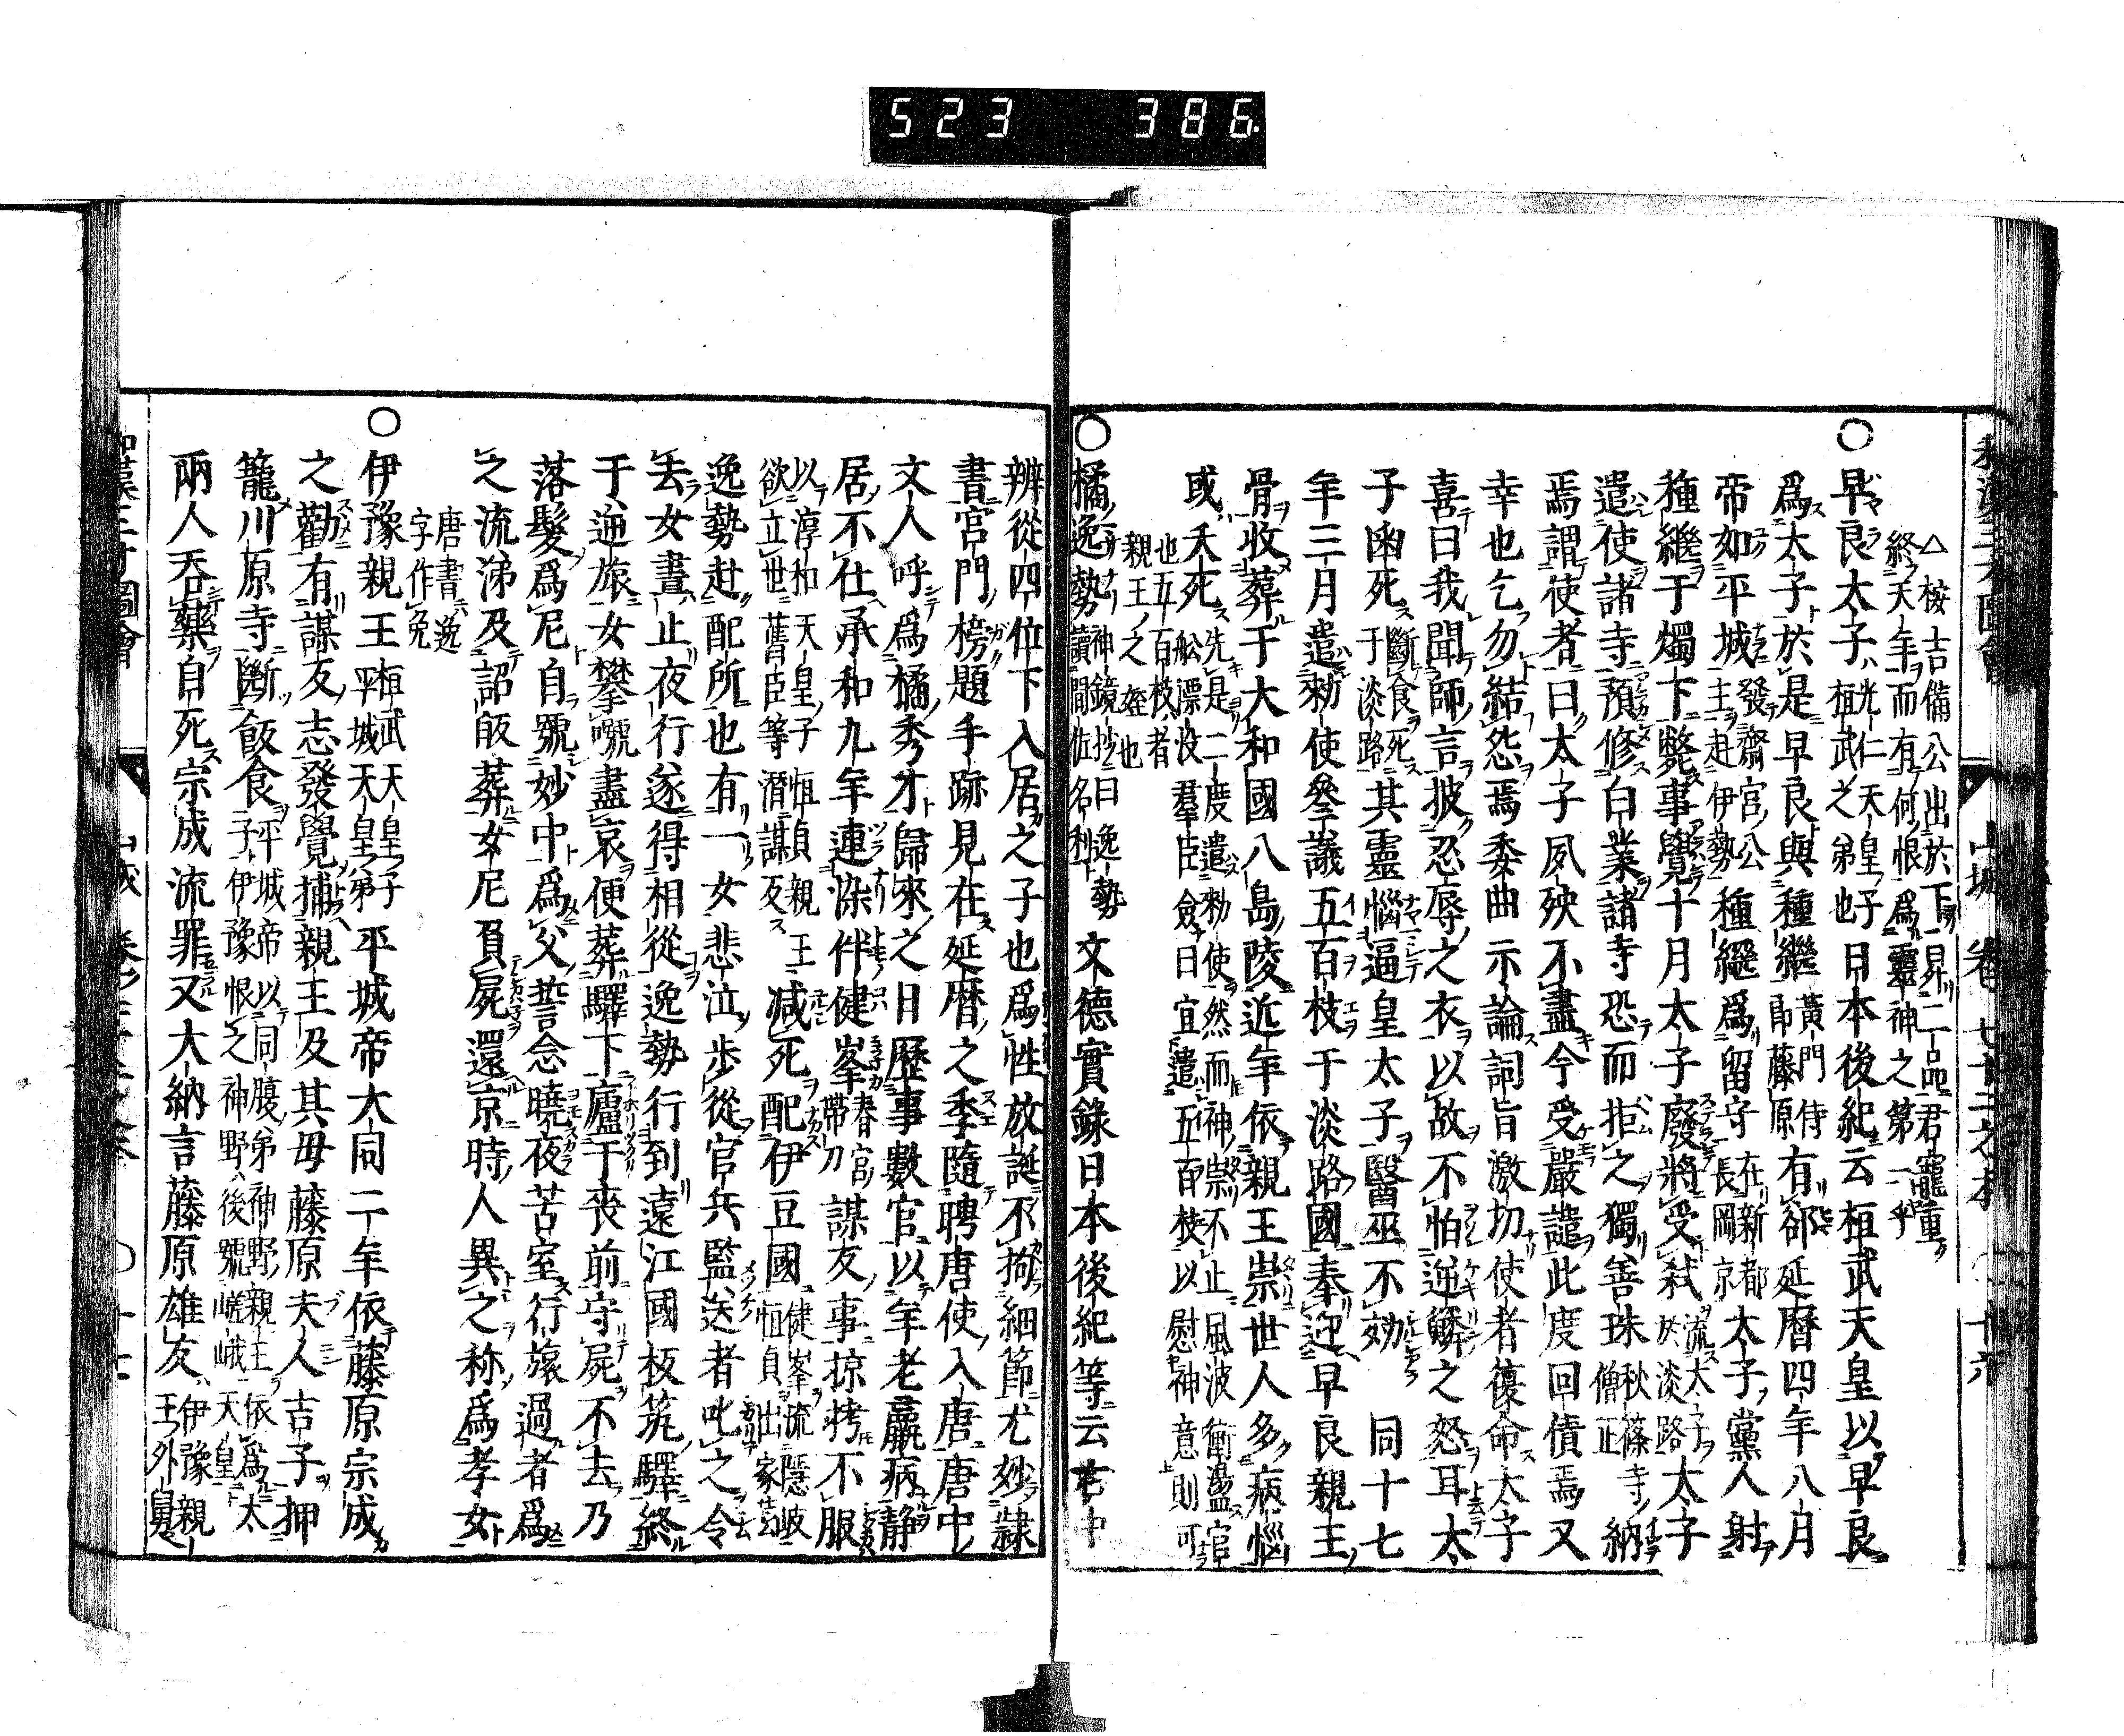 523 386.
△按吉備公出於下昇二品君寵重
終天年而有何恨爲靈神之第一乎
○早良太子光仁天皇子桓武之弟也日本後紀云桓武天皇以早良
爲太子於是早良與種繼黃門侍郎藤原有郤延暦四年八月
帝如平城發齋宮公主赴伊勢種繼爲留守在新都長岡京太子黨人射
種繼于燭下斃事覺十月太子廢將受弑流太子於淡路太子
遣使諸寺預修白業諸寺恐而拒之獨善珠秋篠寺僧正納
焉謂使者曰太子夙殃不盡今受嚴譴此度回債焉又
幸也乞勿結怨焉委曲示論詞旨激切使者復命太子
喜曰我聞師言披忍辱之衣以故不怕逆鱗之怒耳太
子幽死斷食死于淡路其靈惱逼皇太子醫巫不効 同十七
年三月遣勅使參議五百枝于淡路國奉迎早良親王
骨收葬于大和國八島陵近年依親王崇世人多病惱
或夭死先是二度遣勅使然而神崇不止風波衝盪官船漂没羣臣僉曰宜遣五百枝以慰神意則可
也五百枝者親王之姪也
○橘逸勢神鏡抄曰逸勢讀間佐名利 文德實錄日本後紀等云右中
辨從四位下入居之子也爲性放誕不拘細節尤妙隷
書宮門榜題手跡見在延暦之季隨聘唐使入唐唐中
文人呼爲橘秀才歸來之日歷事數官以年老羸病静
居不仕承和九年連染伴健岑春宮帶刀謀反事掠拷不服
以淳和天皇子恒貞親王欲立世舊臣等潜謀反減死配伊豆國健峯流隱岐恒貞出家云云
逸勢赴配所也有一女悲泣歩從官兵監送者叱之令
去女晝止夜行遂得相從逸勢行到遠江國板筑驛終
于逆旅女攀號盡哀便葬驛下廬于喪前守屍不去乃
落髮爲尼自號妙冲爲父誓念曉夜苦室行旅過者爲
之流涕及詔皈葬女尼負屍還京時人異之称爲孝女
唐書逸字作免
○伊豫親王桓武天皇子平城天皇弟平城帝大同二年依藤原宗成
之勸有謀反志發覺捕親王及其母藤原夫人吉子押
籠川原寺斷飯食平城帝以同腹弟神野親王依爲太子伊豫恨之神野後號嵯峨天皇
兩人呑藥自死宗成流罪又大納言藤原雄友伊豫親王外舅